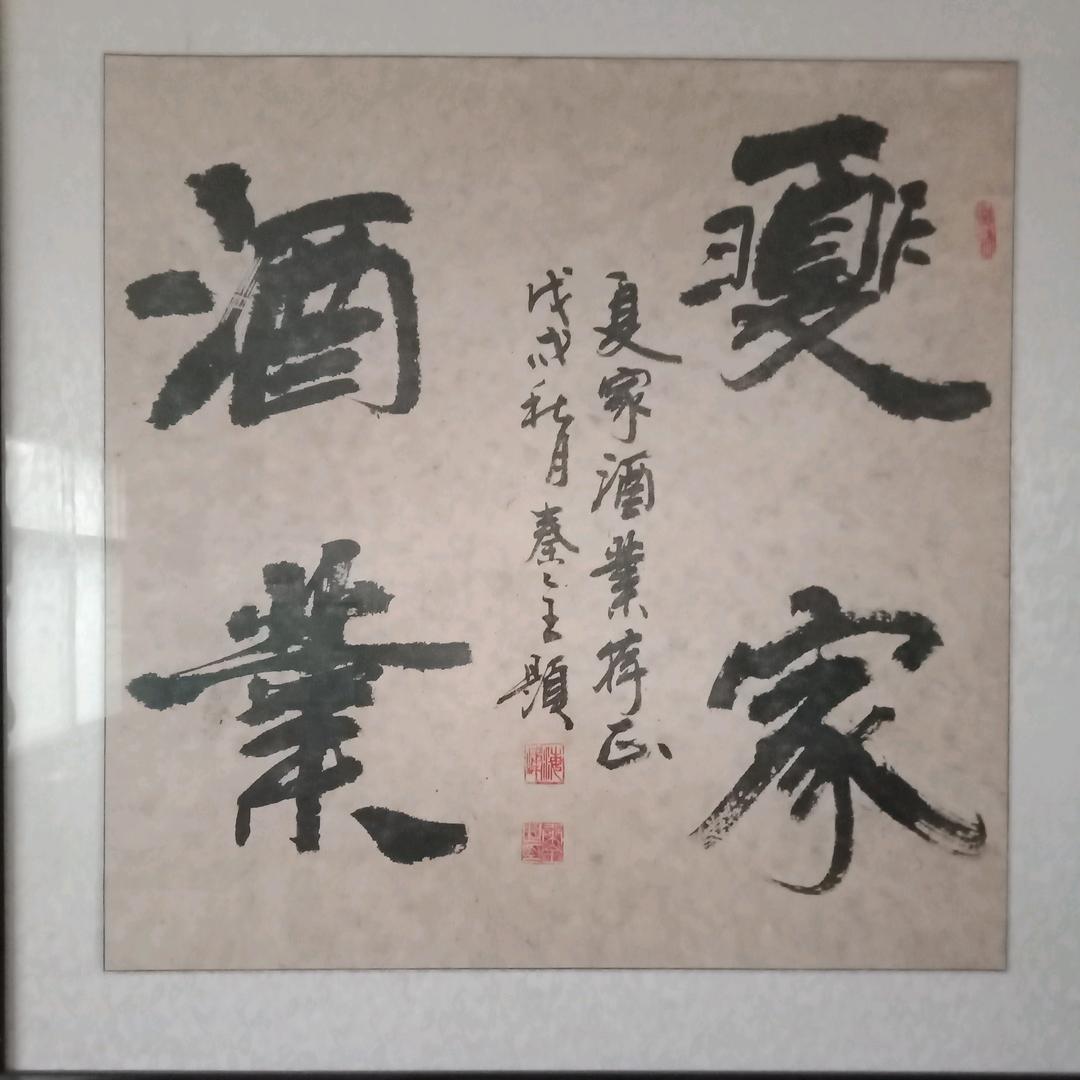 夏家
酒業
夏家酒業存正
戊戌秋月秦之主題